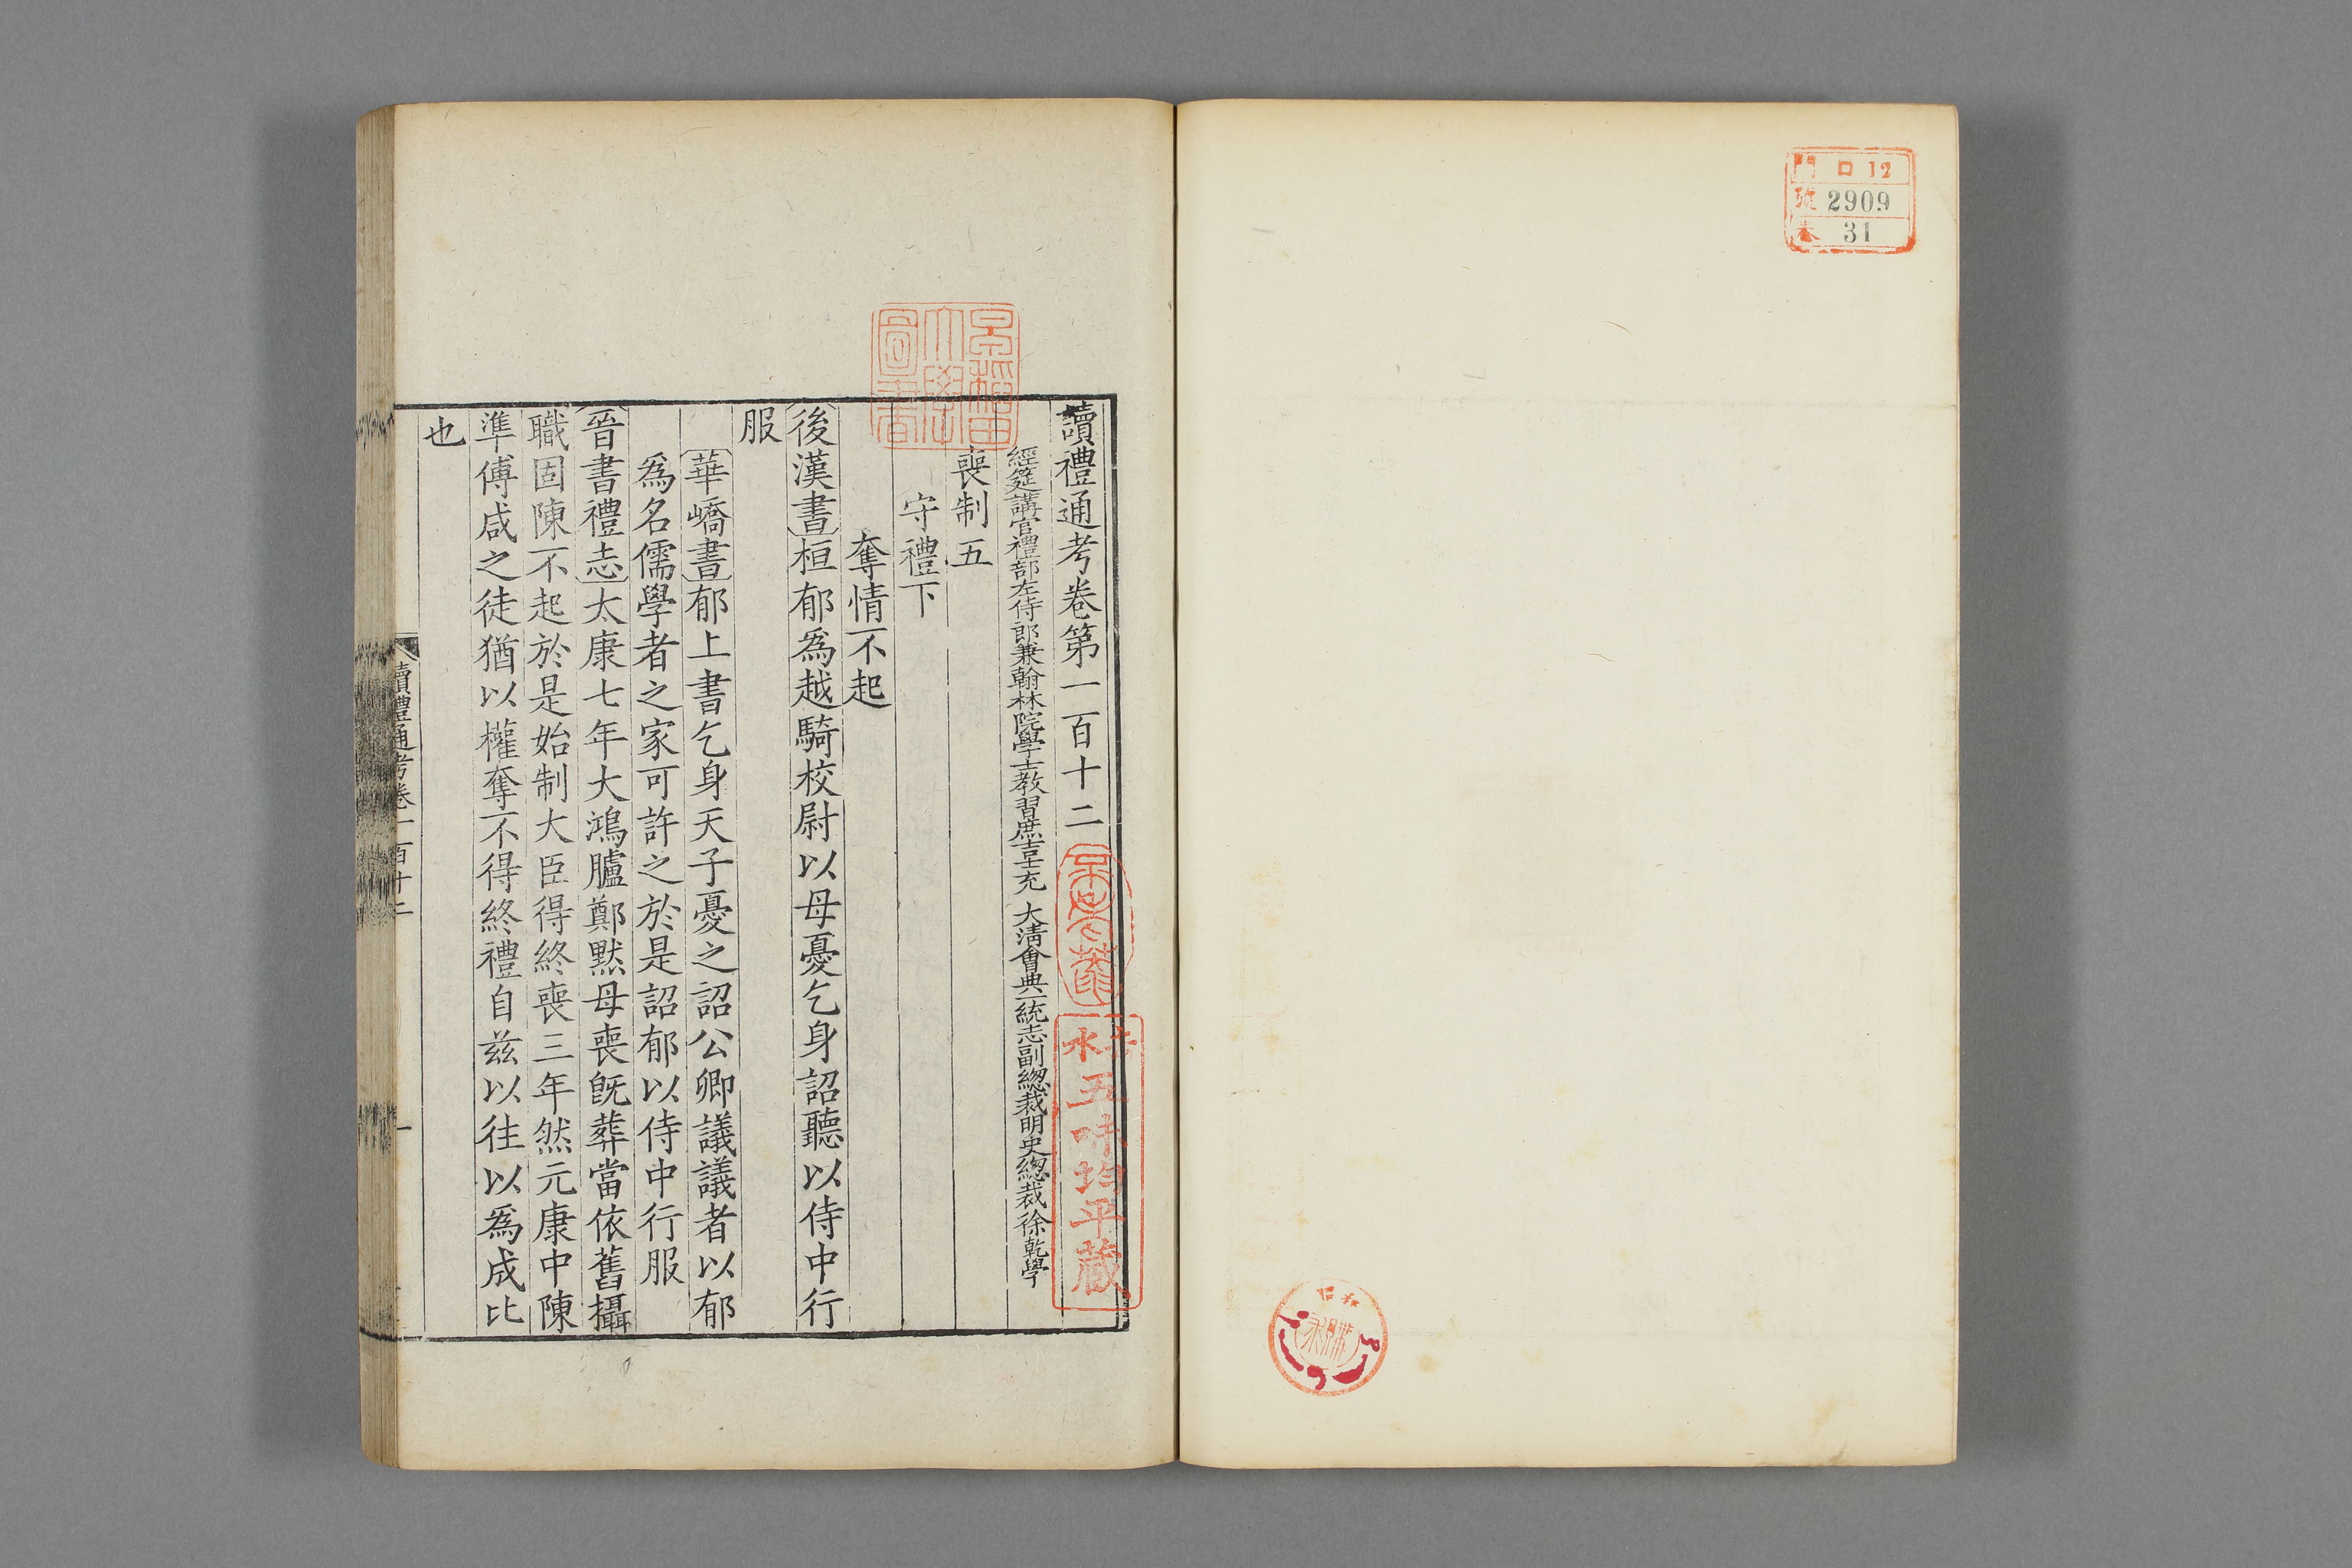 門 ロ 12
號 2909
卷 31
讀禮通考卷第一百十二
經筵講官禮部左侍郎兼翰林院學士教習庶吉士充 大清會典一統志副總裁明史總裁徐乾學
喪制五
守禮下
奪情不起
後漢書桓郁爲越騎校尉以母憂乞身詔聽以侍中行
服
華嶠書郁上書乞身天子憂之詔公卿議議者以郁
爲名儒學者之家可許之於是詔郁以侍中行服
晉書禮志太康七年大鴻臚鄭默母喪旣葬當依舊攝
職固陳不起於是始制大臣得終喪三年然元康中陳
準傅咸之徒猶以權奪不得終禮自茲以往以爲成比
也
讀禮通考卷一百十二
一
早稻田大學圖書
五味均平藏